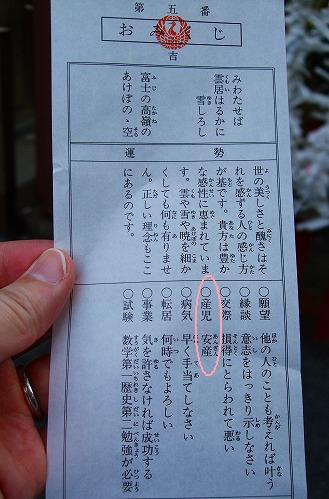 第五番
おみくじ
吉
みわたせば
雲居はるかに
雪しろし
富士の高嶺の
あけぼのゝ空
運勢
世の美しさと醜さはそ
れを感ずる人の感じ方
が基です。貴方は豊か
な感性に恵まれていま
す。雲や雪や暁を細か
くしても何も有りませ
ん。正しい理念もここ
にあるのです。
○願望 他の人のことも考えれば叶う
○縁談 意志をはっきり示しなさい
○交際 損得にとらわれて悪い
○産児 安産
○病気 早く手当てしなさい
○転居 何時でもよろしい
○事業 気を許さなければ成功する
○試験 数学第一歴史第二勉強が必要